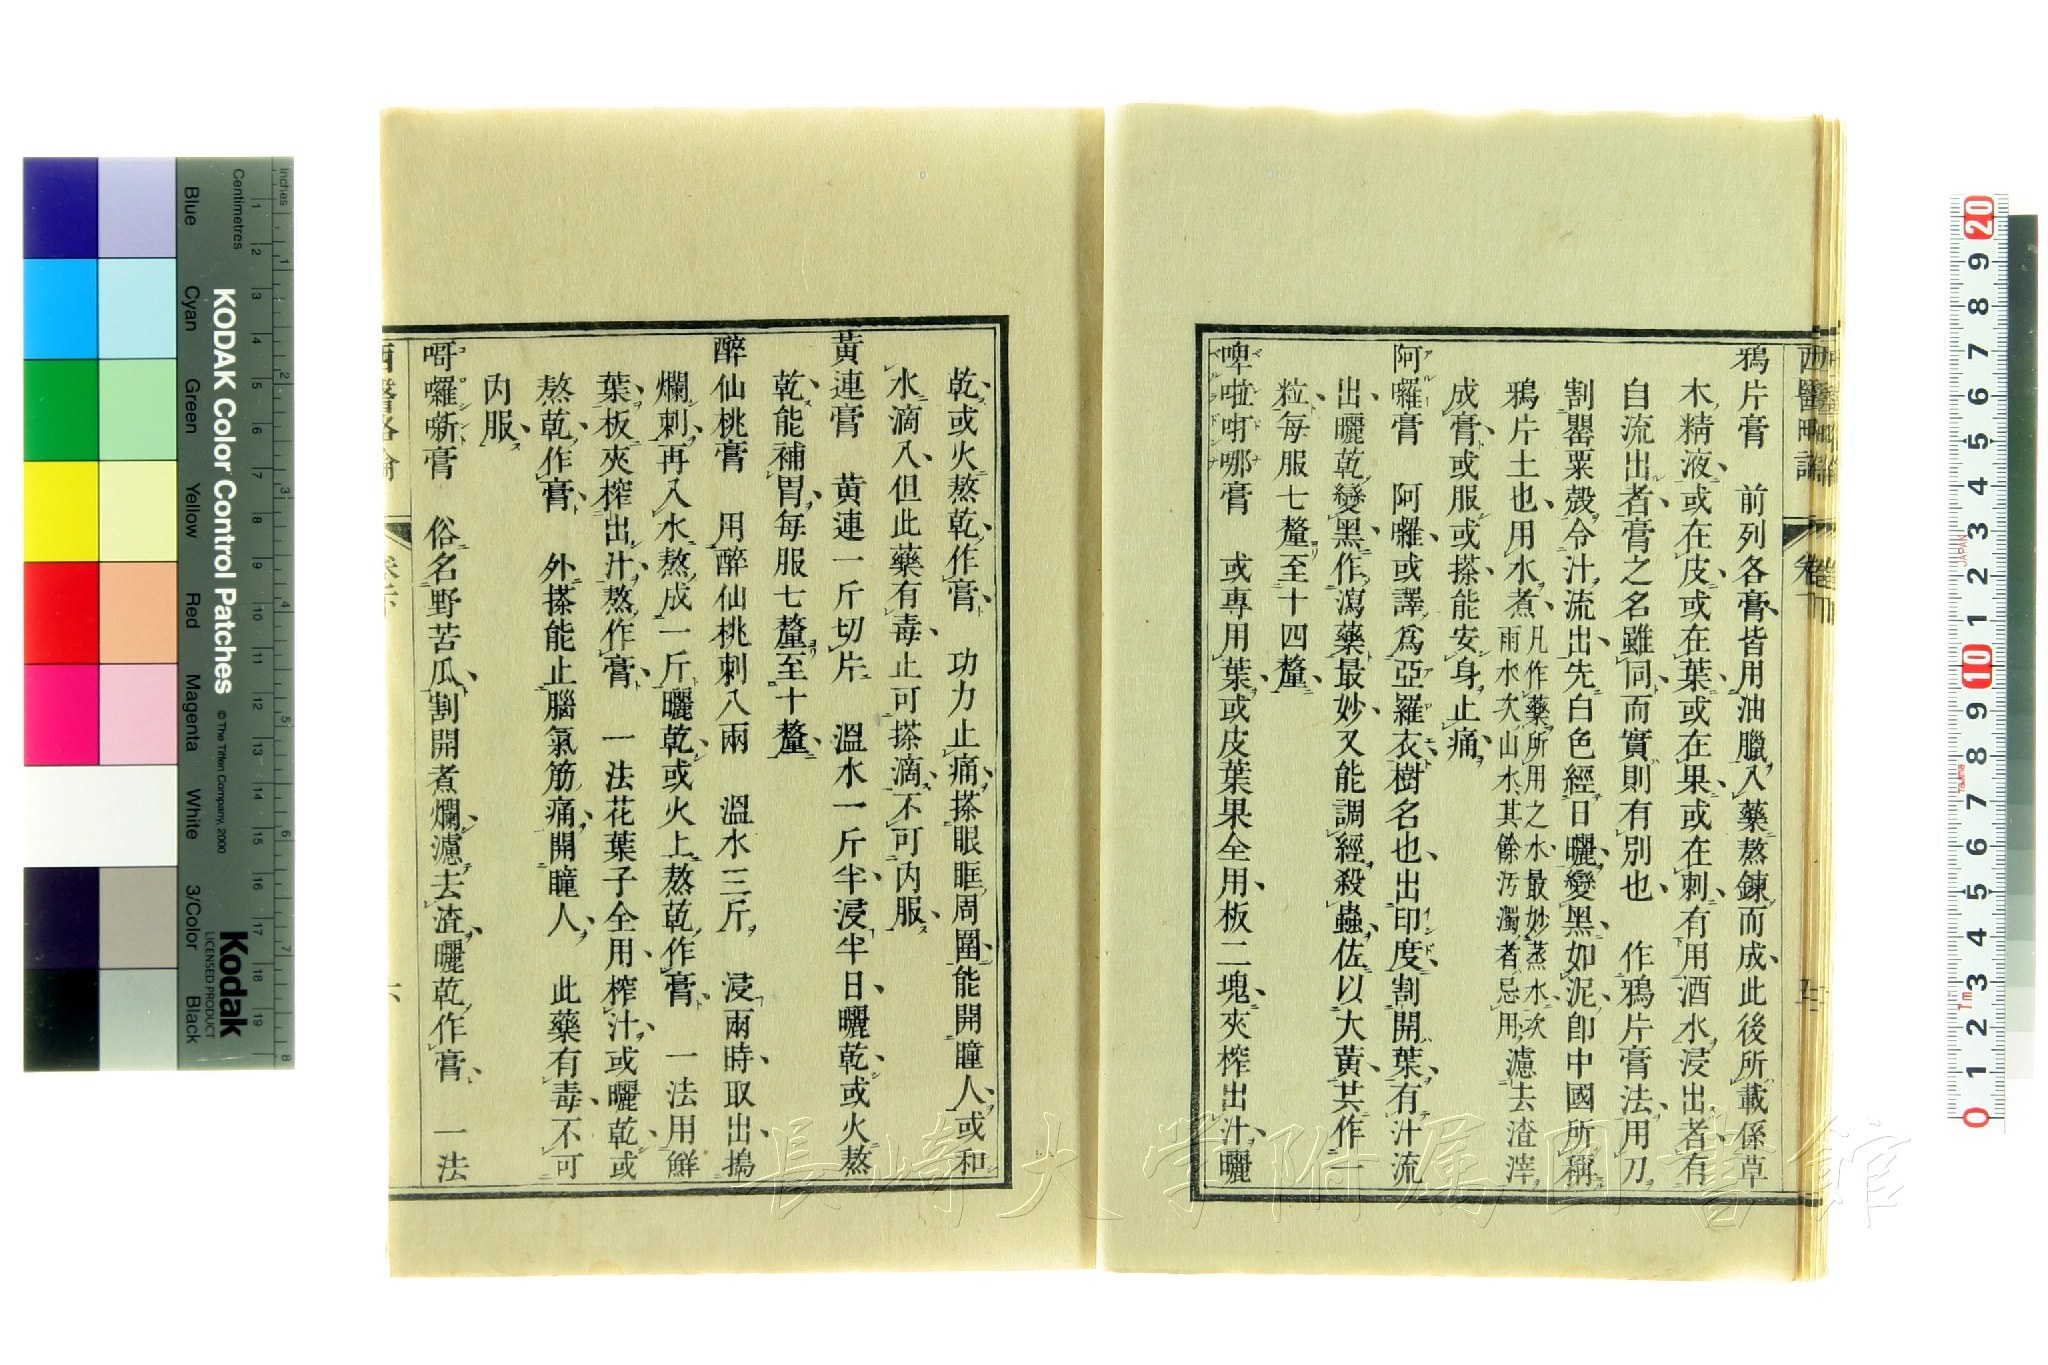 鴉片膏　前列各膏皆用油臘入藥熬鍊而成此後所載係草
木精液或在皮或在葉或在果或在刺有用酒水浸出者有
自流出者膏之名雖同而實則有別也　作鴉片膏法用刀
割罌粟殼令汁流出先白色經日曬變黑如泥卽中國所稱
鴉片土也用水煮凡作藥所用之水最妙蒸水次雨水次山水其餘汚濁者忌用濾去渣滓
成膏或服或搽能安身止痛
阿囉膏　阿囉或譯爲亞羅衣樹名也出印度割開葉有汁流
出曬乾變黑作瀉藥最妙又能調經殺蟲佐以大黃共作一
粒每服七釐至十四釐
啤啦咑哪膏　或專用葉或皮葉果全用板二塊夾榨出汁曬
乾或火熬乾作膏　功力止痛搽眼眶周圍能開瞳人或和
水滴入但此藥有毒止可搽滴不可內服
黃連膏　黃連一斤切片　溫水一斤半浸半日曬乾或火熬
乾能補胃每服七釐至十釐
醉仙桃膏　用醉仙桃刺八兩　溫水三斤　浸兩時取出搗
爛刺再入水熬成一斤曬乾或火上熬乾作膏　一法用鮮
葉板夾榨出汁熬作膏　一法花葉子全用榨汁或曬乾或
熬乾作膏　外搽能止腦氣筋痛開瞳人　此藥有毒不可
內服
哥囉嘶膏　俗名野苦瓜割開煮爛濾去渣曬乾作膏　一法
西醫略論
卷下
六
長崎大学附属図書館
KODAK Color Control Patches
© The Tiffen Company, 2000
Kodak
LICENSED PRODUCT
Blue
Cyan
Green
Yellow
Red
Magenta
White
3/Color
Black
Inches
Centimetres
1 2 3 4 5 6 7 8 9 10 11 12 13 14 15 16 17 18 19
1 2 3 4 5 6 7 8
20 9 8 7 6 5 4 3 2 1 10 9 8 7 6 5 4 3 2 1 0
JAPAN